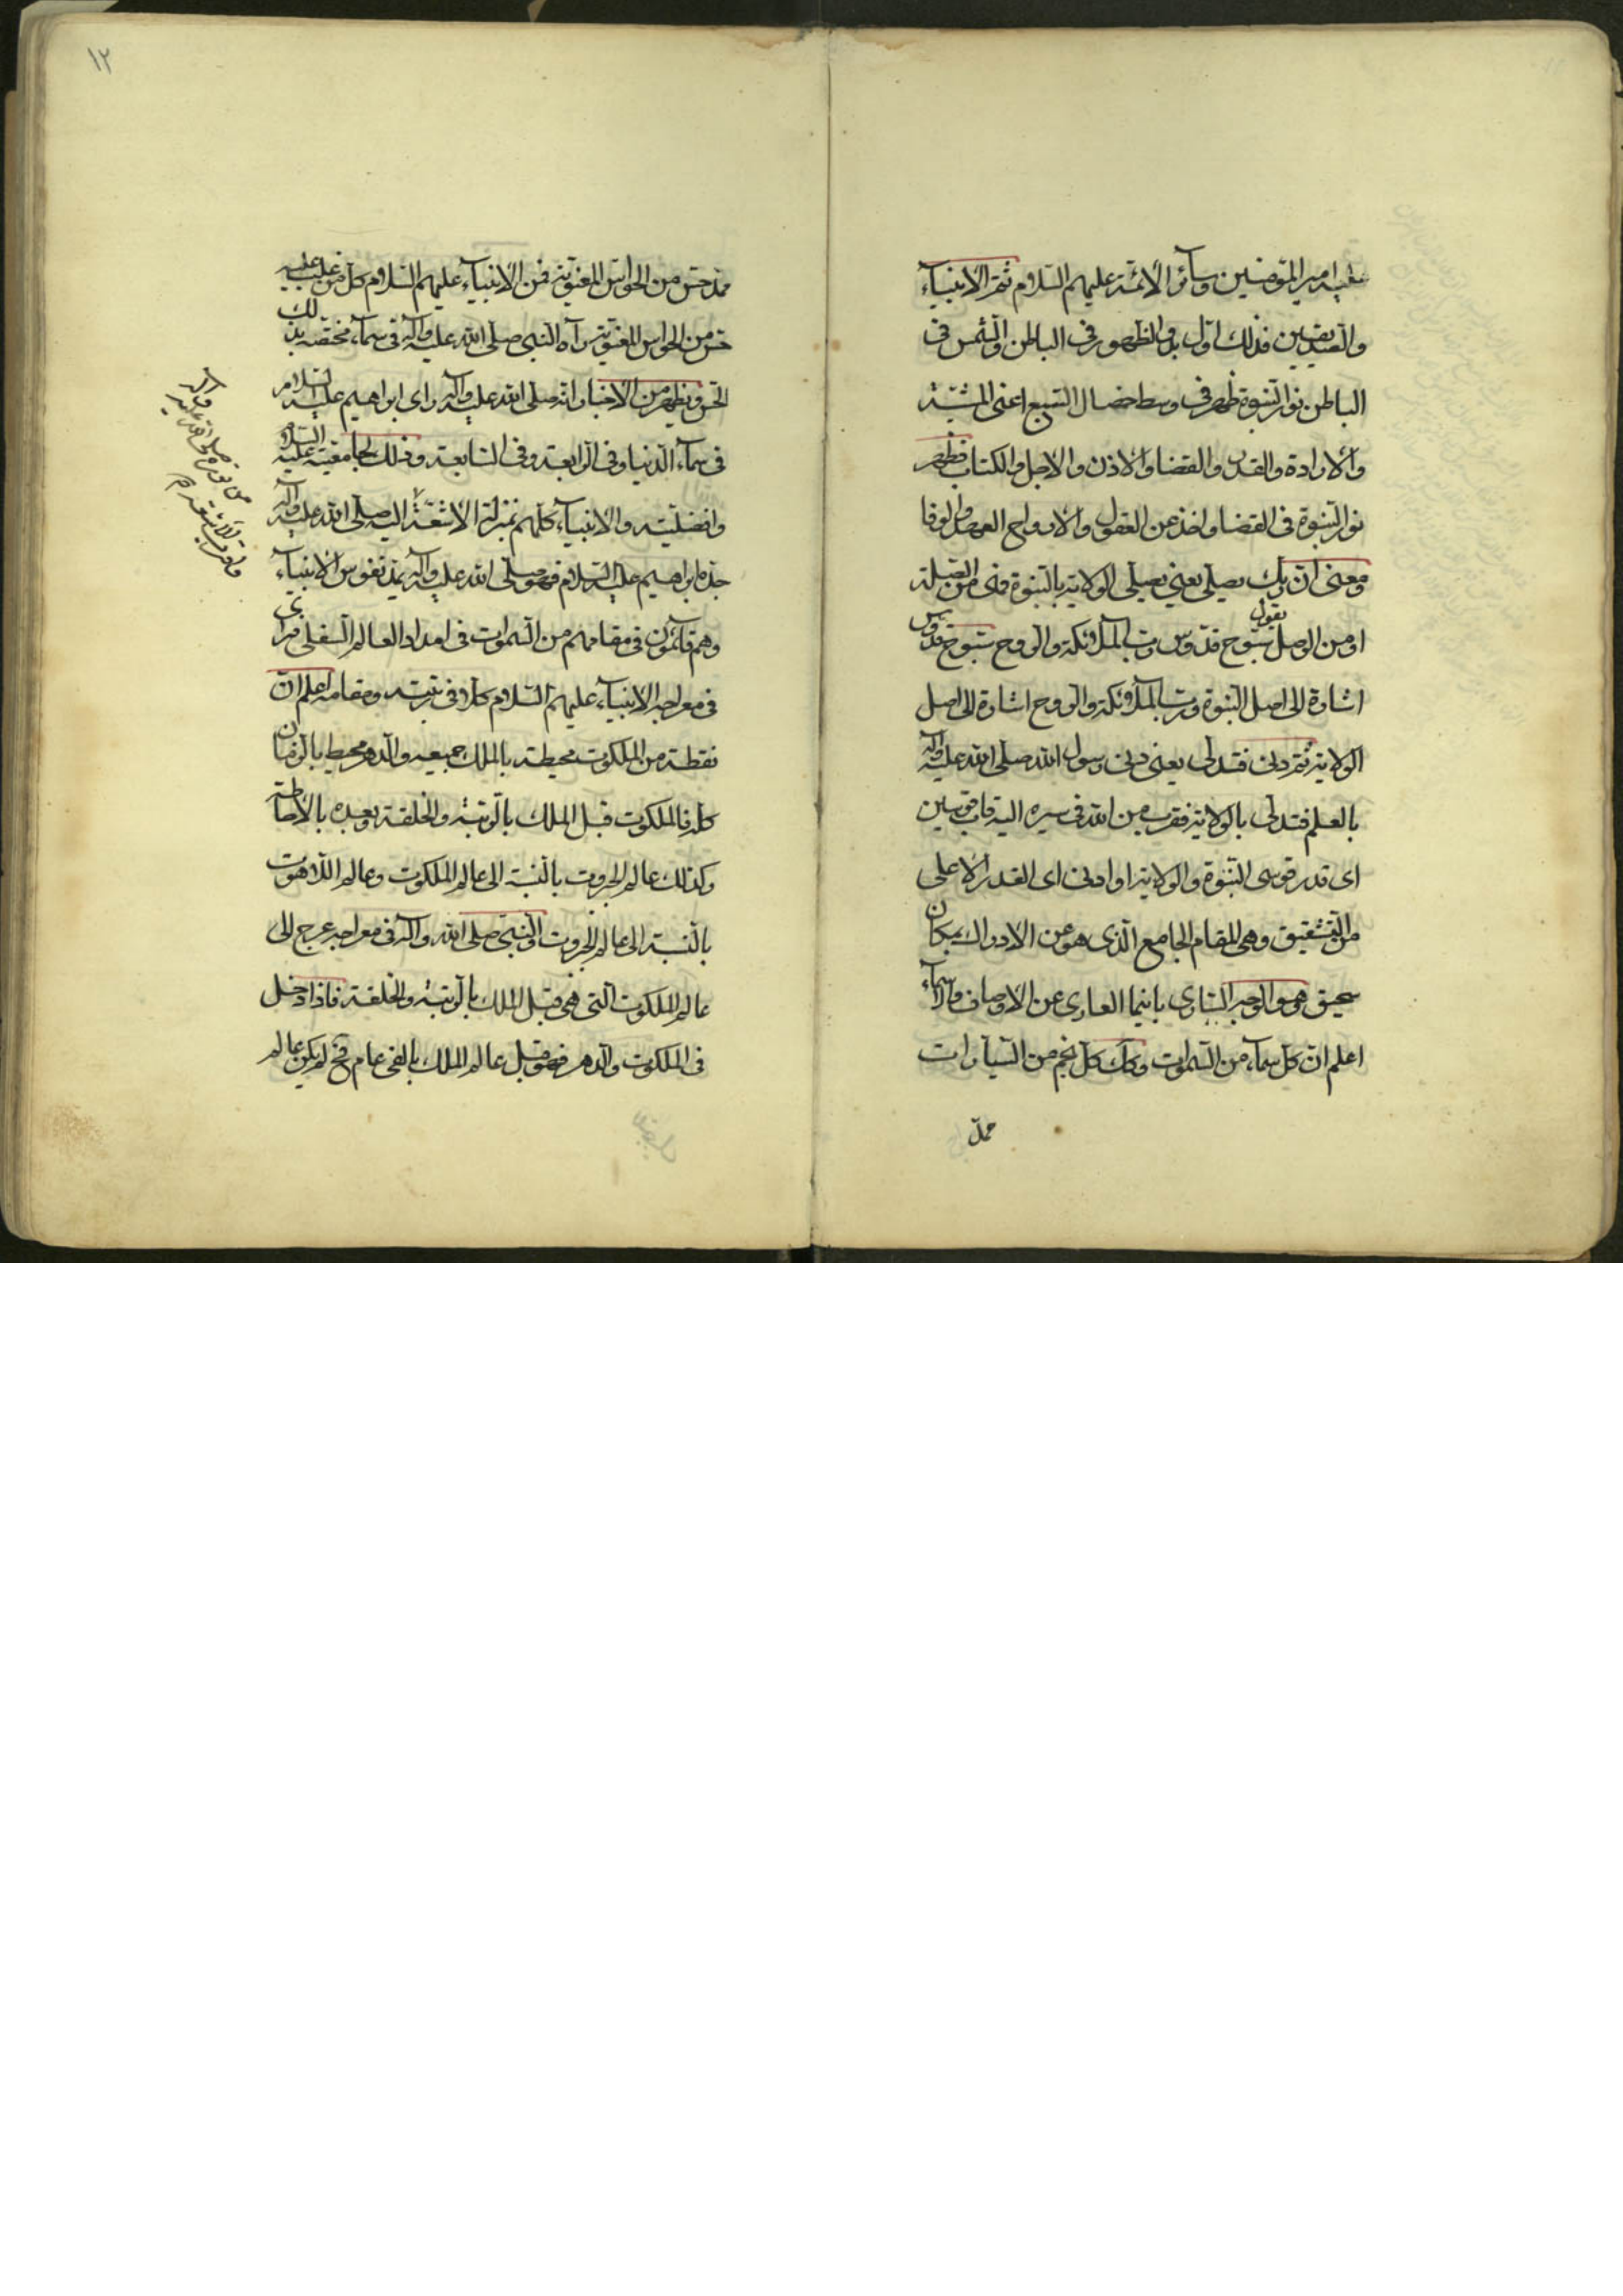 امير المؤمنين وسآئر الأئمّة عليهم السّلام ثمّ الأنبيآء
والصّديقين فذلك اوّل بدو الظهور فى الباطن والشّمس فى
الباطن نور النّبوة ظهر فى وسط خصال السّبع اعنى المشيّة
والارادة والقدر والقضا والاذن والاجل والكتاب فظهر
نور النّبوة فى القضا واخذ عن العقول والارواح العهد والوفا
ومعنى انّ ربّك يصلّى يعنى يصلّى الولاية بالنّبوة فمن القبلة
او من الوصل يقول سبّوح قدّوس ربّ الملآئكة والرّوح سبّوح قدّوس
اشارة الى اصل النّبوة وربّ الملآئكة والرّوح اشارة الى اصل
الولاية ثمّ دنى فتدلّى يعنى دنى رسول الله صلّى الله عليه وآله
بالعلم فتدلّى بالولاية فقرب من الله فى سيره اليه قاب قوسين
اى قدر قوسى النّبوة والولاية او ادنى اى القدر الاعلى
من التشقيق وهى المقام الجامع الّذى هو عن الادراك بمكان
سحيق وهو الوجه السّارى باينما العارى عن الاوصاف والاسمآء
اعلم انّ كلّ سمآء من السّموات وكك كلّ نجم من السّيّارات
ممدّ
ممدّ حسّ من الحواسّ المعنويّة فمن الأنبيآء عليهم السّلام كلّ من غلب عليه
حسّ من الحواس المعنويّة رآه النّبى صلّى الله عليه وآله فى سمآء مختصّة بذلك
الحسّ ويظهر من الاخبار انّه صلّى الله عليه وآله راى ابراهيم عليه السّلام
فى سمآء الدّنيا وفى الرّابعة وفى السّابعة وذلك لجامعيّته عليه السّلام
وافضليّته والانبيآء كلّهم بمنزلة الأشعّة اليه صلّى الله عليه وآله
جدّه ابراهيم عليه السّلام فهو صلّى الله عليه وآله يمدّ نفوس الانبيآء
وهم قآئمون فى مقامهم من السّموات فى امداد العالم السّفلى فرآى
فى معراجه الانبيآء عليهم السّلام كلاّ فى رتبته ومقامه اعلم انّ
نقطة من الملكوت محيطة بالملك جميعه والدّهر محيط بالزّمان
كلّه فالملكوت قبل الملك بالرّتبة والخلقة وبعده بالأحاطة
وكذلك عالم الجبروت بالنّسبة الى عالم الملكوت وعالم اللّاهوت
بالنّسبة الى عالم الجبروت والنّبىّ صلّى الله وآله فى معراجه عرج الى
عالم الملكوت الّتى هى قبل الملك بالرّتبة والخلقة فاذا دخل
فى الملكوت والدّهر فهو قبل عالم الملك بالفى عام فح لم يكن عالم
١٢